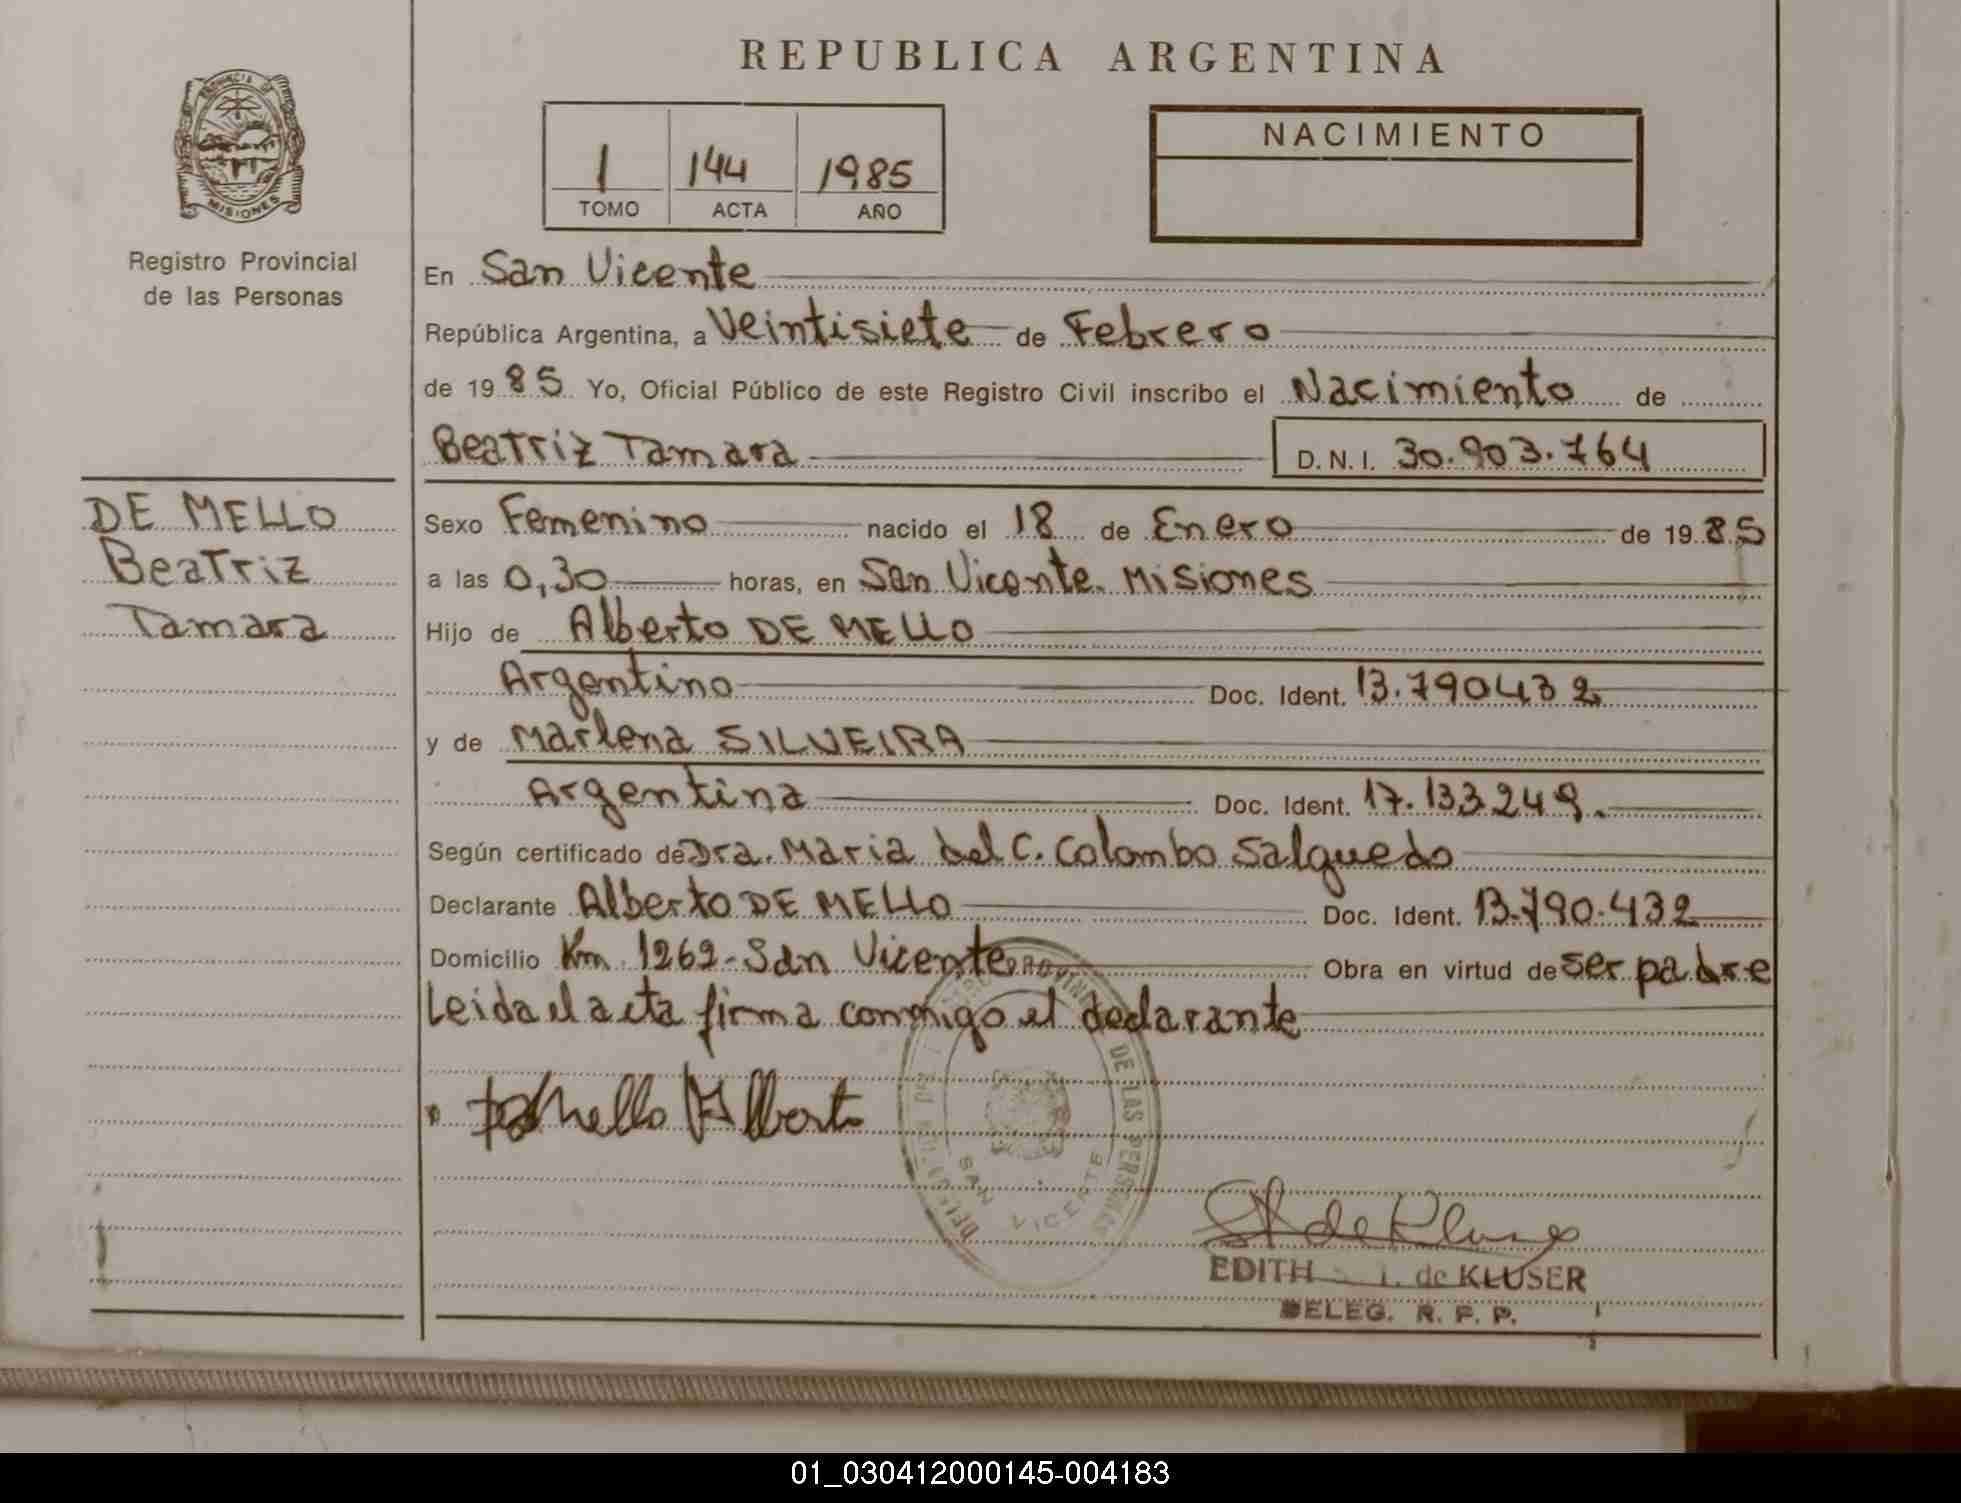 REPUBLICA ARGENTINA
PROVINCIA DE
MISIONES
Registro Provincial
de las Personas
1 144 1985
TOMO ACTA AÑO
NACIMIENTO
En San Vicente
República Argentina, a Veintisiete de Febrero
de 1985 Yo, Oficial Público de este Registro Civil inscribo el Nacimiento de
Beatriz Tamara D.N.I. 30.903.764
DE MELLO
Beatriz
Tamara
Sexo Femenino nacido el 18 de Enero de 1985
a las 0,30 horas, en San Vicente. Misiones
Hijo de Alberto DE MELLO
Argentino Doc. Ident. 13.790432
y de Marlena SILVEIRA
Argentina Doc. Ident. 17.133249.
Según certificado de Dra. Maria del C. Colombo Salguedo
Declarante Alberto DE MELLO Doc. Ident. 13.790.432
Domicilio Km 1262-San Vicente Obra en virtud de ser padre
Leida el acta firma conmigo el declarante
De Mello Alberto
DE LAS PERSONAS
SAN VICENTE
de Kluser
EDITH I. de KLUSER
DELEG. R. P. P.
01_030412000145-004183